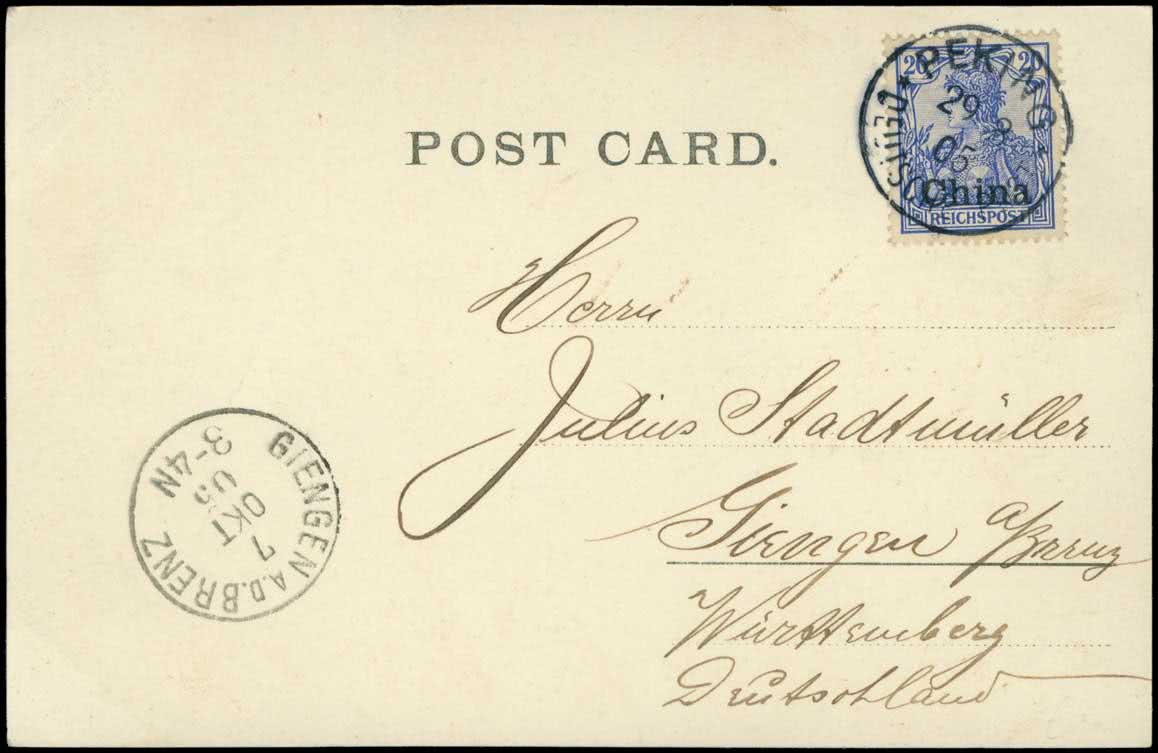 POST CARD.
20 20
China
REICHSPOST
PEKING
29 8
DEUTSCHE
Herrn
Julius Stadtmüller
Giengen a/Brenz
Württemberg
Deutschland
GIENGEN A.D. BRENZ
7
OKT
3-4N